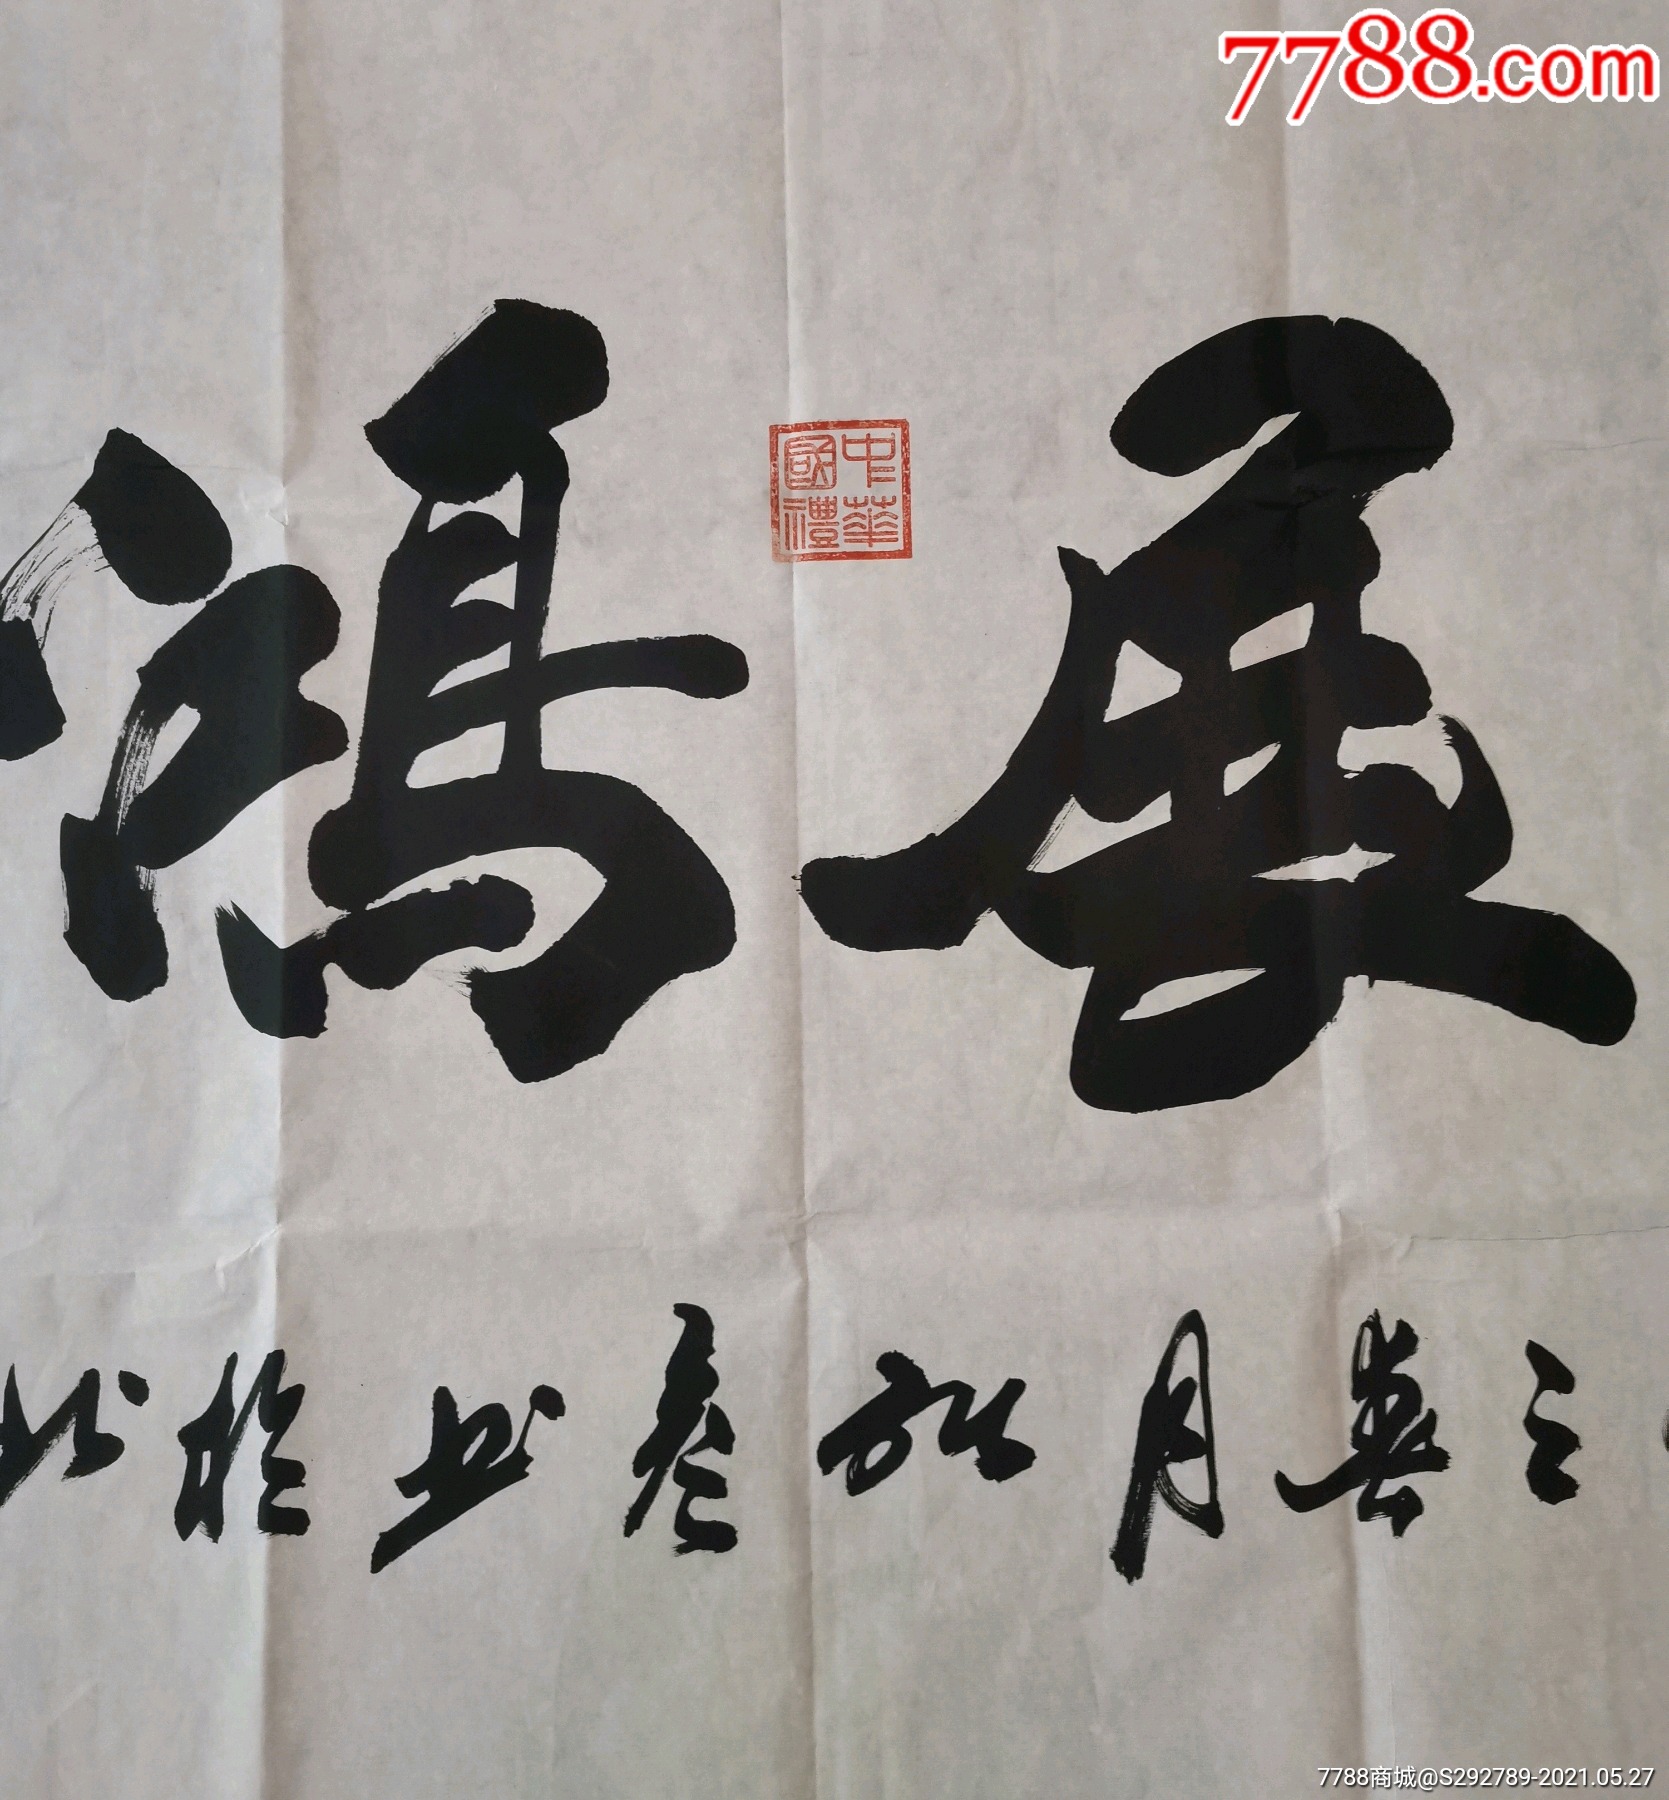 7788.com
展鴻
中華國禮
之春月書於北
7788商城@S292789-2021.05.27